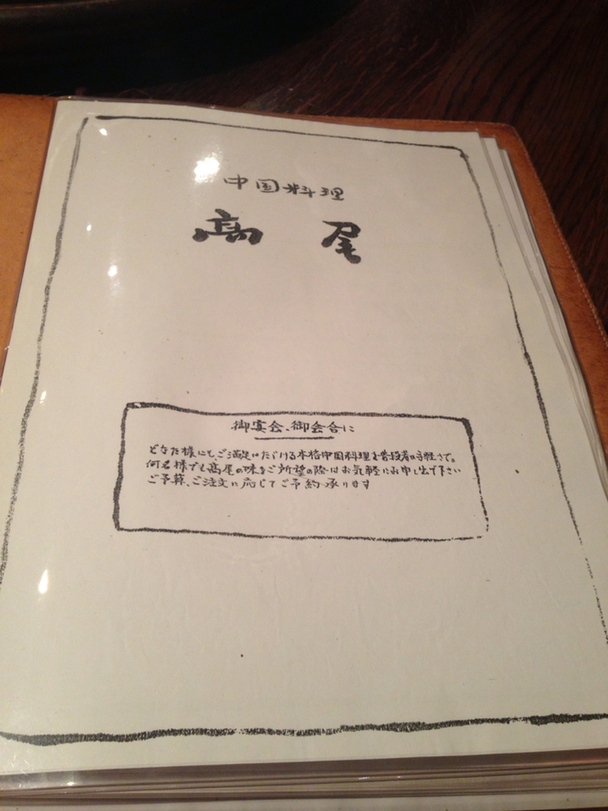 中国料理
高尾
御宴会、御会合に
どなた様にも、ご満足いただける本格中国料理を普段着の手軽さで。
何名様でも高尾の味をご所望の際はお気軽にお申し出下さい
ご予算、ご注文に応じてご予約承ります